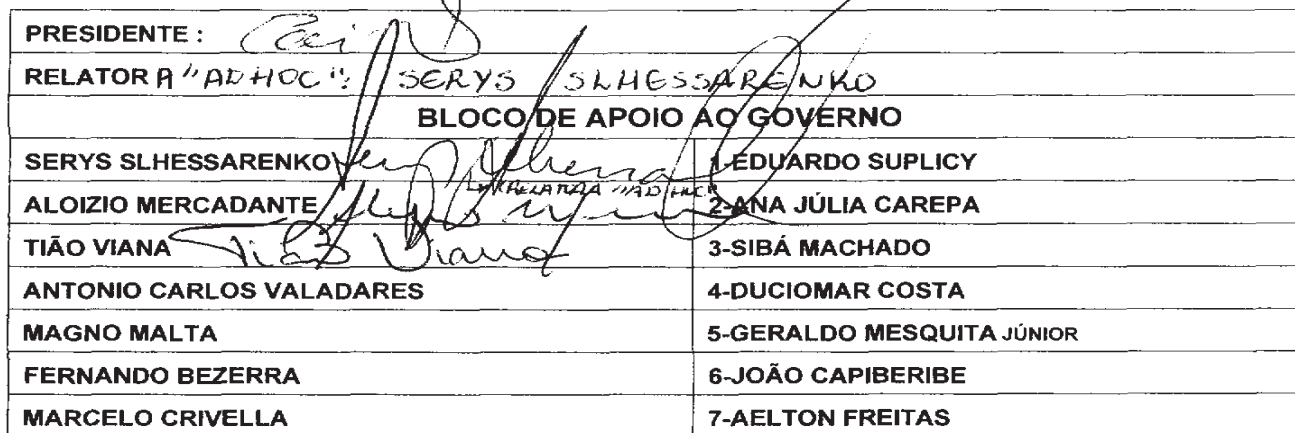 PRESIDENTE :
RELATOR A "AD HOC": SERYS SLHESSARENKO
BLOCO DE APOIO AO GOVERNO
SERYS SLHESSARENKO 1-EDUARDO SUPLICY
RELATORA "AD HOC"
ALOIZIO MERCADANTE 2-ANA JÚLIA CAREPA
TIÃO VIANA Tião Viana 3-SIBÁ MACHADO
ANTONIO CARLOS VALADARES 4-DUCIOMAR COSTA
MAGNO MALTA 5-GERALDO MESQUITA JÚNIOR
FERNANDO BEZERRA 6-JOÃO CAPIBERIBE
MARCELO CRIVELLA 7-AELTON FREITAS